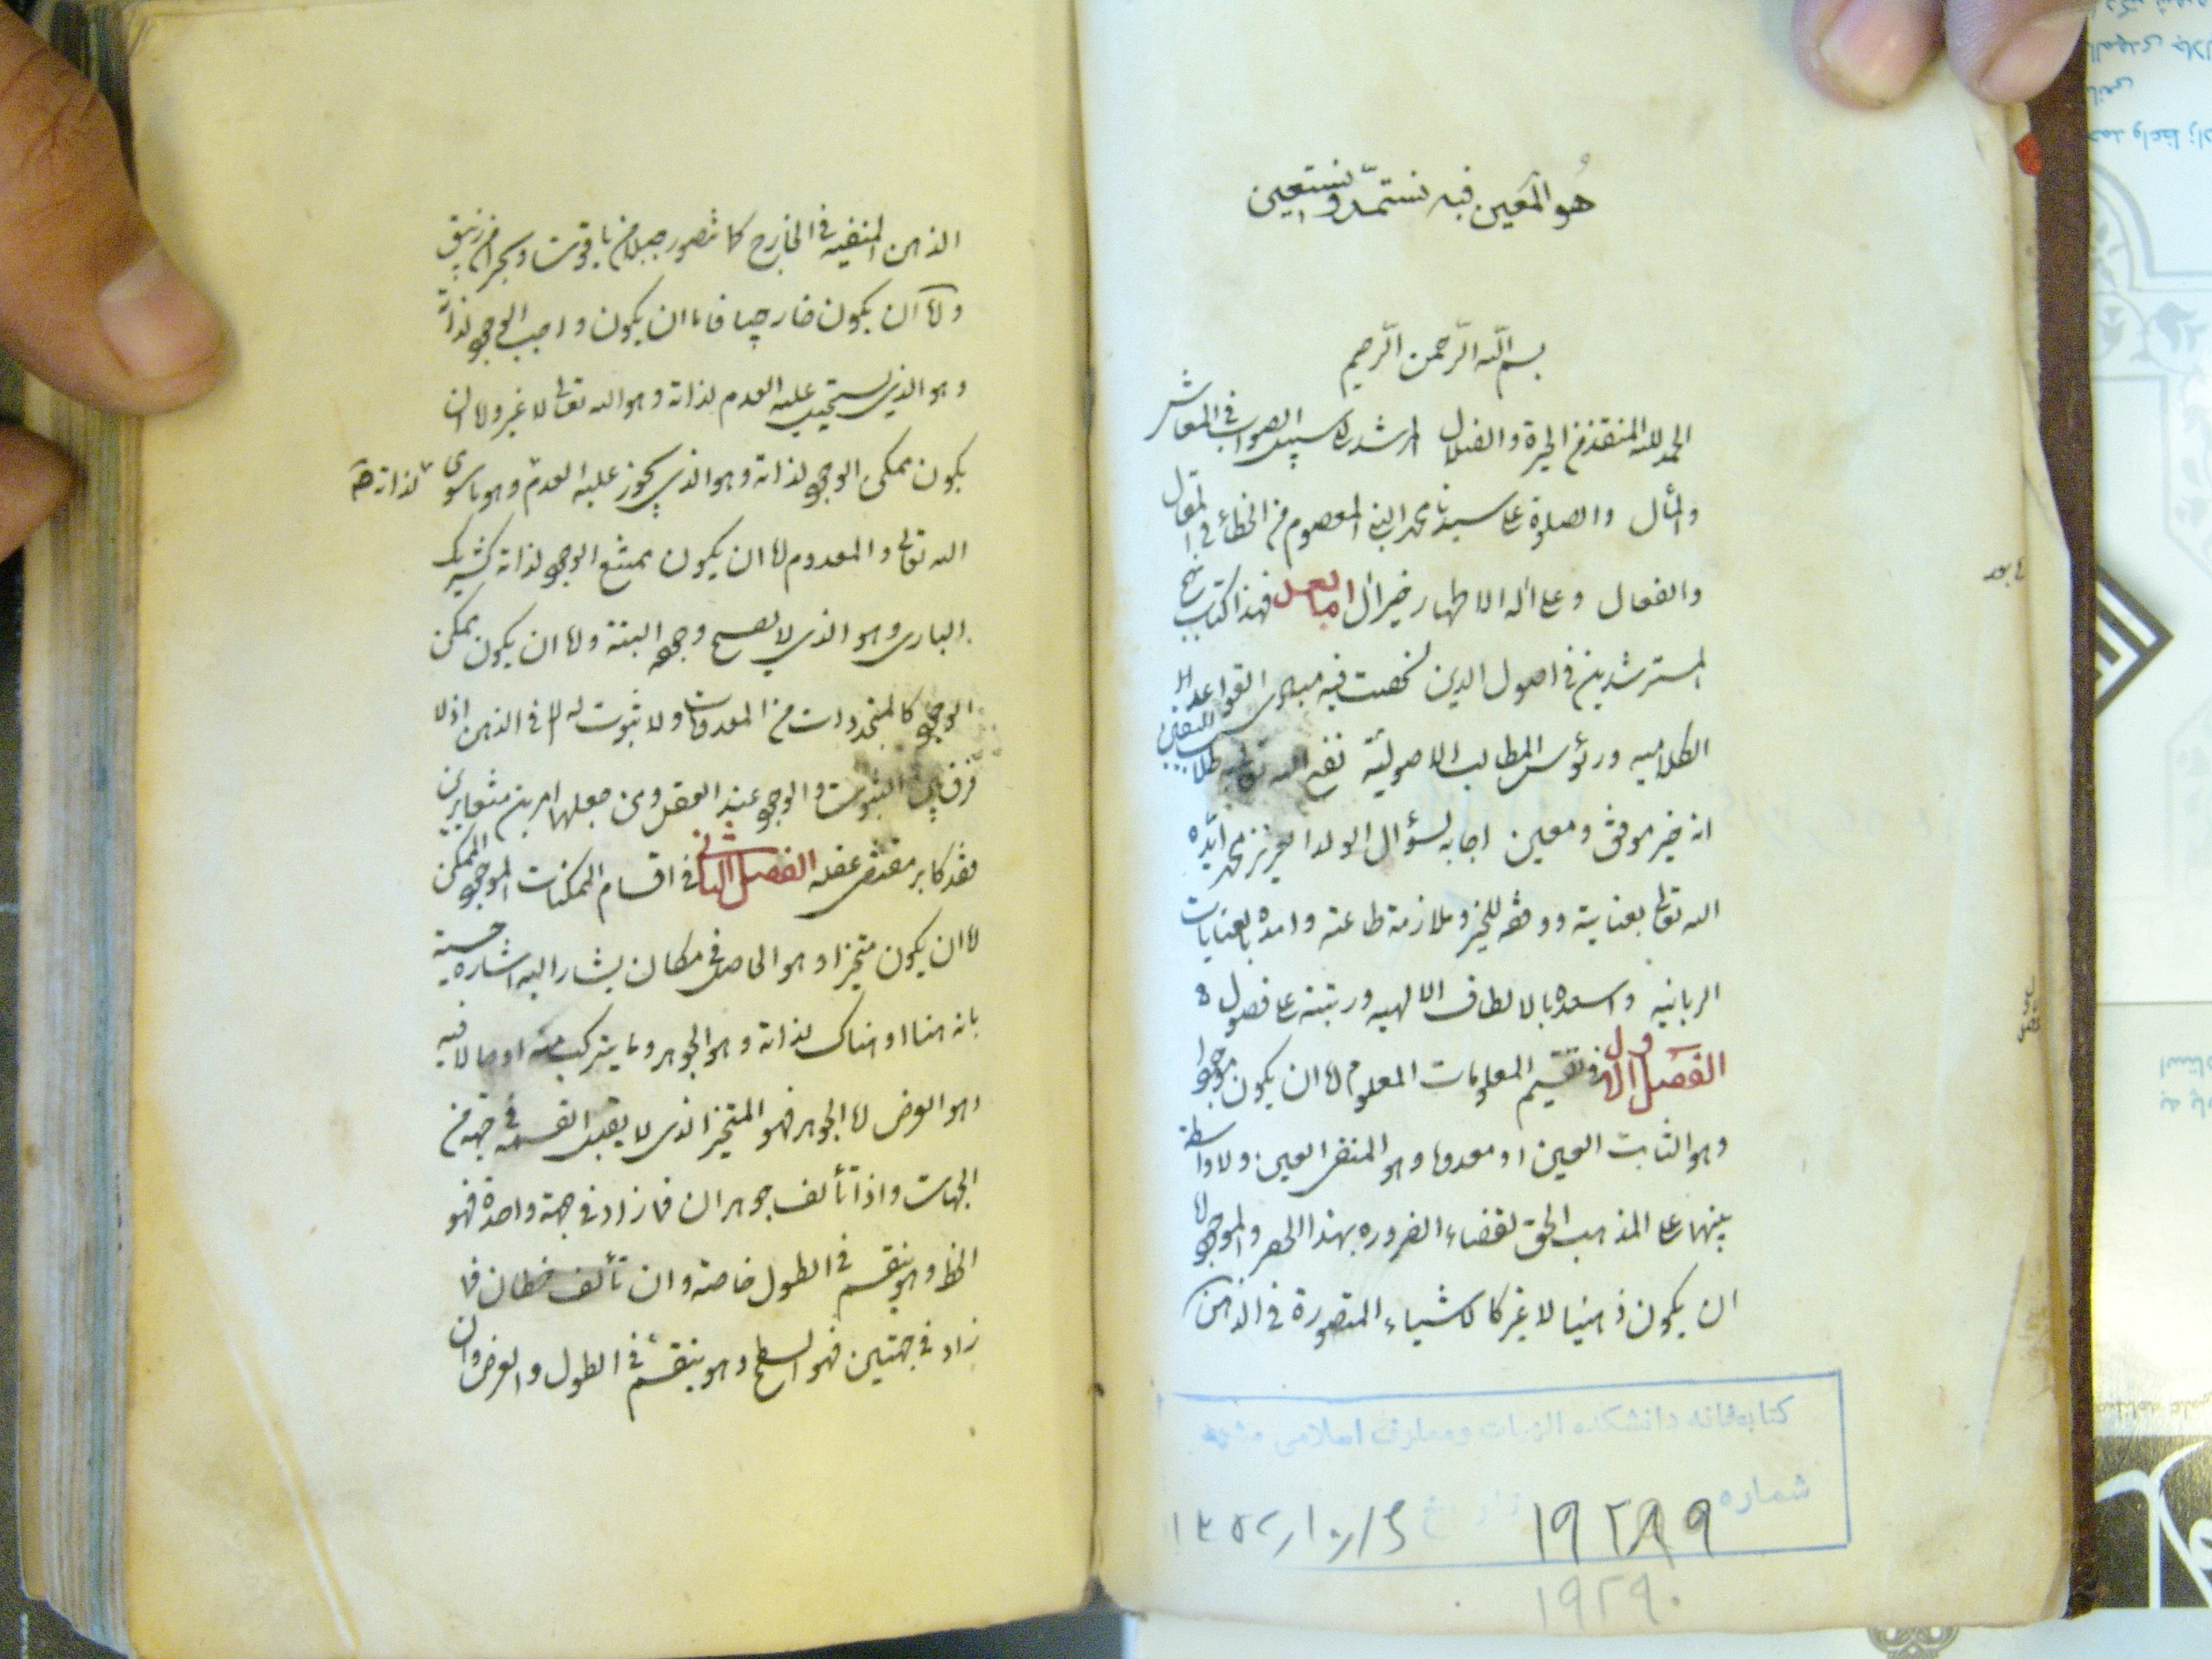 هو المعین فبه نستمدّ ونستعین
بسم الله الرّحمن الرّحیم
الحمد لله المنقذ من الحیرة والضلال المرشد الی سبیل الصواب فی المعاش
والمأل والصلوة علی سیدنا محمد النبی المعصوم من الخطأ فی المقال
والفعال وعلی اله الاطهار خیر ال اما بعد فهذا کتاب نهج
المسترشدین فی اصول الدین لخصت فیه مبادی القواعد
الکلامیه ورؤس المطالب الاصولیّة نفع الله تعالی به طلاب الیقین
انه خیر موفق ومعین اجابه لسؤال الولد العزیز محمد ایّده
الله تعالی بعنایته ووفقه للخیر وملازمة طاعته وامده بالعنایات
الربانیه واسعده بالالطاف الالهیه ورتبته علی فصول
الفصل الاول فی تقسیم المعلومات المعلوم اما ان یکون موجودا
وهو الثابت العین او معدوما وهو المنفی العین ولا واسطة
بینهما علی المذهب الحق لقضاء الضروره بهذا الحصر والموجود اما
ان یکون ذهنیا لا غیر کالاشیاء المتصورة فی الذهن
کتابخانه دانشکده الهیات ومعارف اسلامی مشهد
شماره ۱۹۲۸۹ تاریخ
۱۹۲۹۰
الذهن المنفیه فی الخارج کما نتصور جبلا من یاقوت وبحرا من زیبق
واما ان یکون خارجیا فاما ان یکون واجب الوجود لذاته
وهو الذی یستحیل علیه العدم لذاته وهو الله تعالی لا غیر واما ان
یکون ممکن الوجود لذاته وهو الذی یجوز علیه العدم وهو ما سوی
لذاته صح
الله تعالی والمعدوم اما ان یکون ممتنع الوجود لذاته کشریک
الباری وهو الذی لا یصح وجوده البتة واما ان یکون ممکن
الوجود کالمتجددات من المعدومات ولا ثبوت له الا فی الذهن اذ لا
فرق بین الثبوت والوجود عند العقل ومن جعلهما امرین متغایرین
فقد کابر مقتضی عقله الفصل الثانی فی اقسام الممکنات الموجود الممکن
اما ان یکون متحیزا وهو الحاصل فی مکان یشار الیه اشاره حسیة
بانه هنا او هناک لذاته وهو الجوهر وما یترکب منه او حالا فیه
وهو العرض اما الجوهر فهو المتحیز الذی لا یقبل القسمة فی جهة من
الجهات واذا تألف جوهران فما زاد فی جهة واحدة فهو
الخط وهو ینقسم فی الطول خاصة وان تألف خطان فما
زاد فی جهتین فهو السطح وهو ینقسم فی الطول والعرض وان